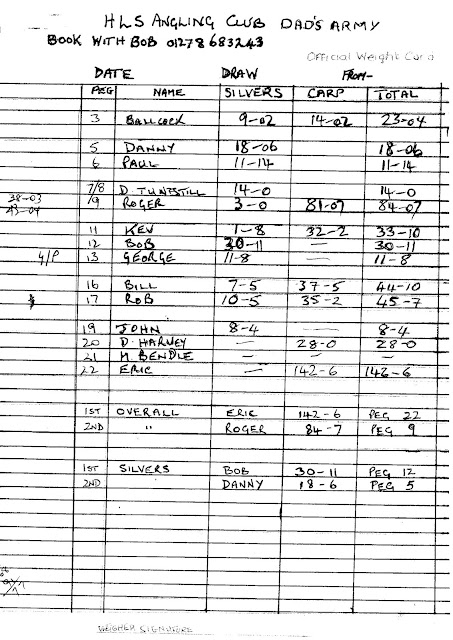 HLS ANGLING CLUB DAD'S ARMY
BOOK WITH BOB 01278 683243
Official Weight Card
DATE DRAW FROM-
PEG NAME SILVERS CARP TOTAL
3 BALLCOCK 9-02 14-02 23-04
5 DANNY 18-06 18-06
6 PAUL 11-14 11-14
7/8 D. TUNSTILL 14-0 14-0
38-03
/9 ROGER 3-0 81-07 84-07
43-04
11 KEV 1-8 32-2 33-10
12 BOB 30-11 — 30-11
4/P 13 GEORGE 11-8 — 11-8
16 BILL 7-5 37-5 44-10
17 ROB 10-5 35-2 45-7
19 JOHN 8-4 — 8-4
20 D. HARVEY — 28-0 28-0
21 M. BENDLE — — —
22 ERIC — 142-6 142-6
1ST OVERALL ERIC 142-6 PEG 22
2ND " ROGER 84-7 PEG 9
1ST SILVERS BOB 30-11 PEG 12
2ND DANNY 18-6 PEG 5
WEIGHER SIGNATURE